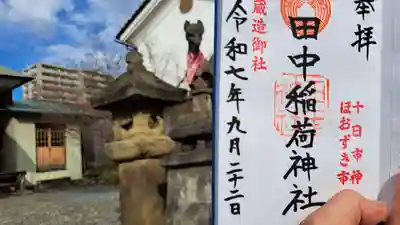 奉拝
十日市神
ほおずき市
田中稲荷神社
蔵造御社
令和七年九月二十二日